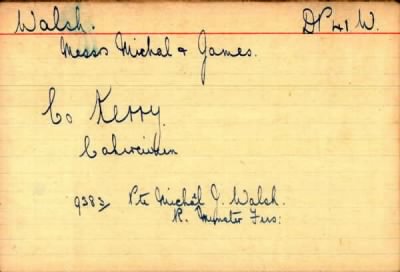 Walsh. DP 41 W.
Messrs Michal & James.
Co Kerry.
Cahirciveen
9383 Pte Michal J. Walsh.
R. Munster Fus: